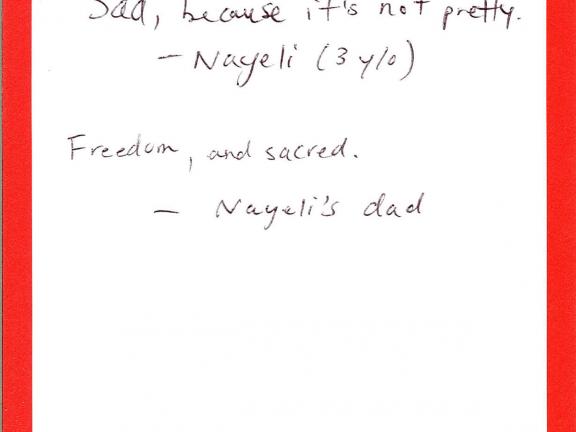 Sad, because it's not pretty.
— Nayeli (3 y/o)
Freedom, and sacred.
— Nayeli's dad